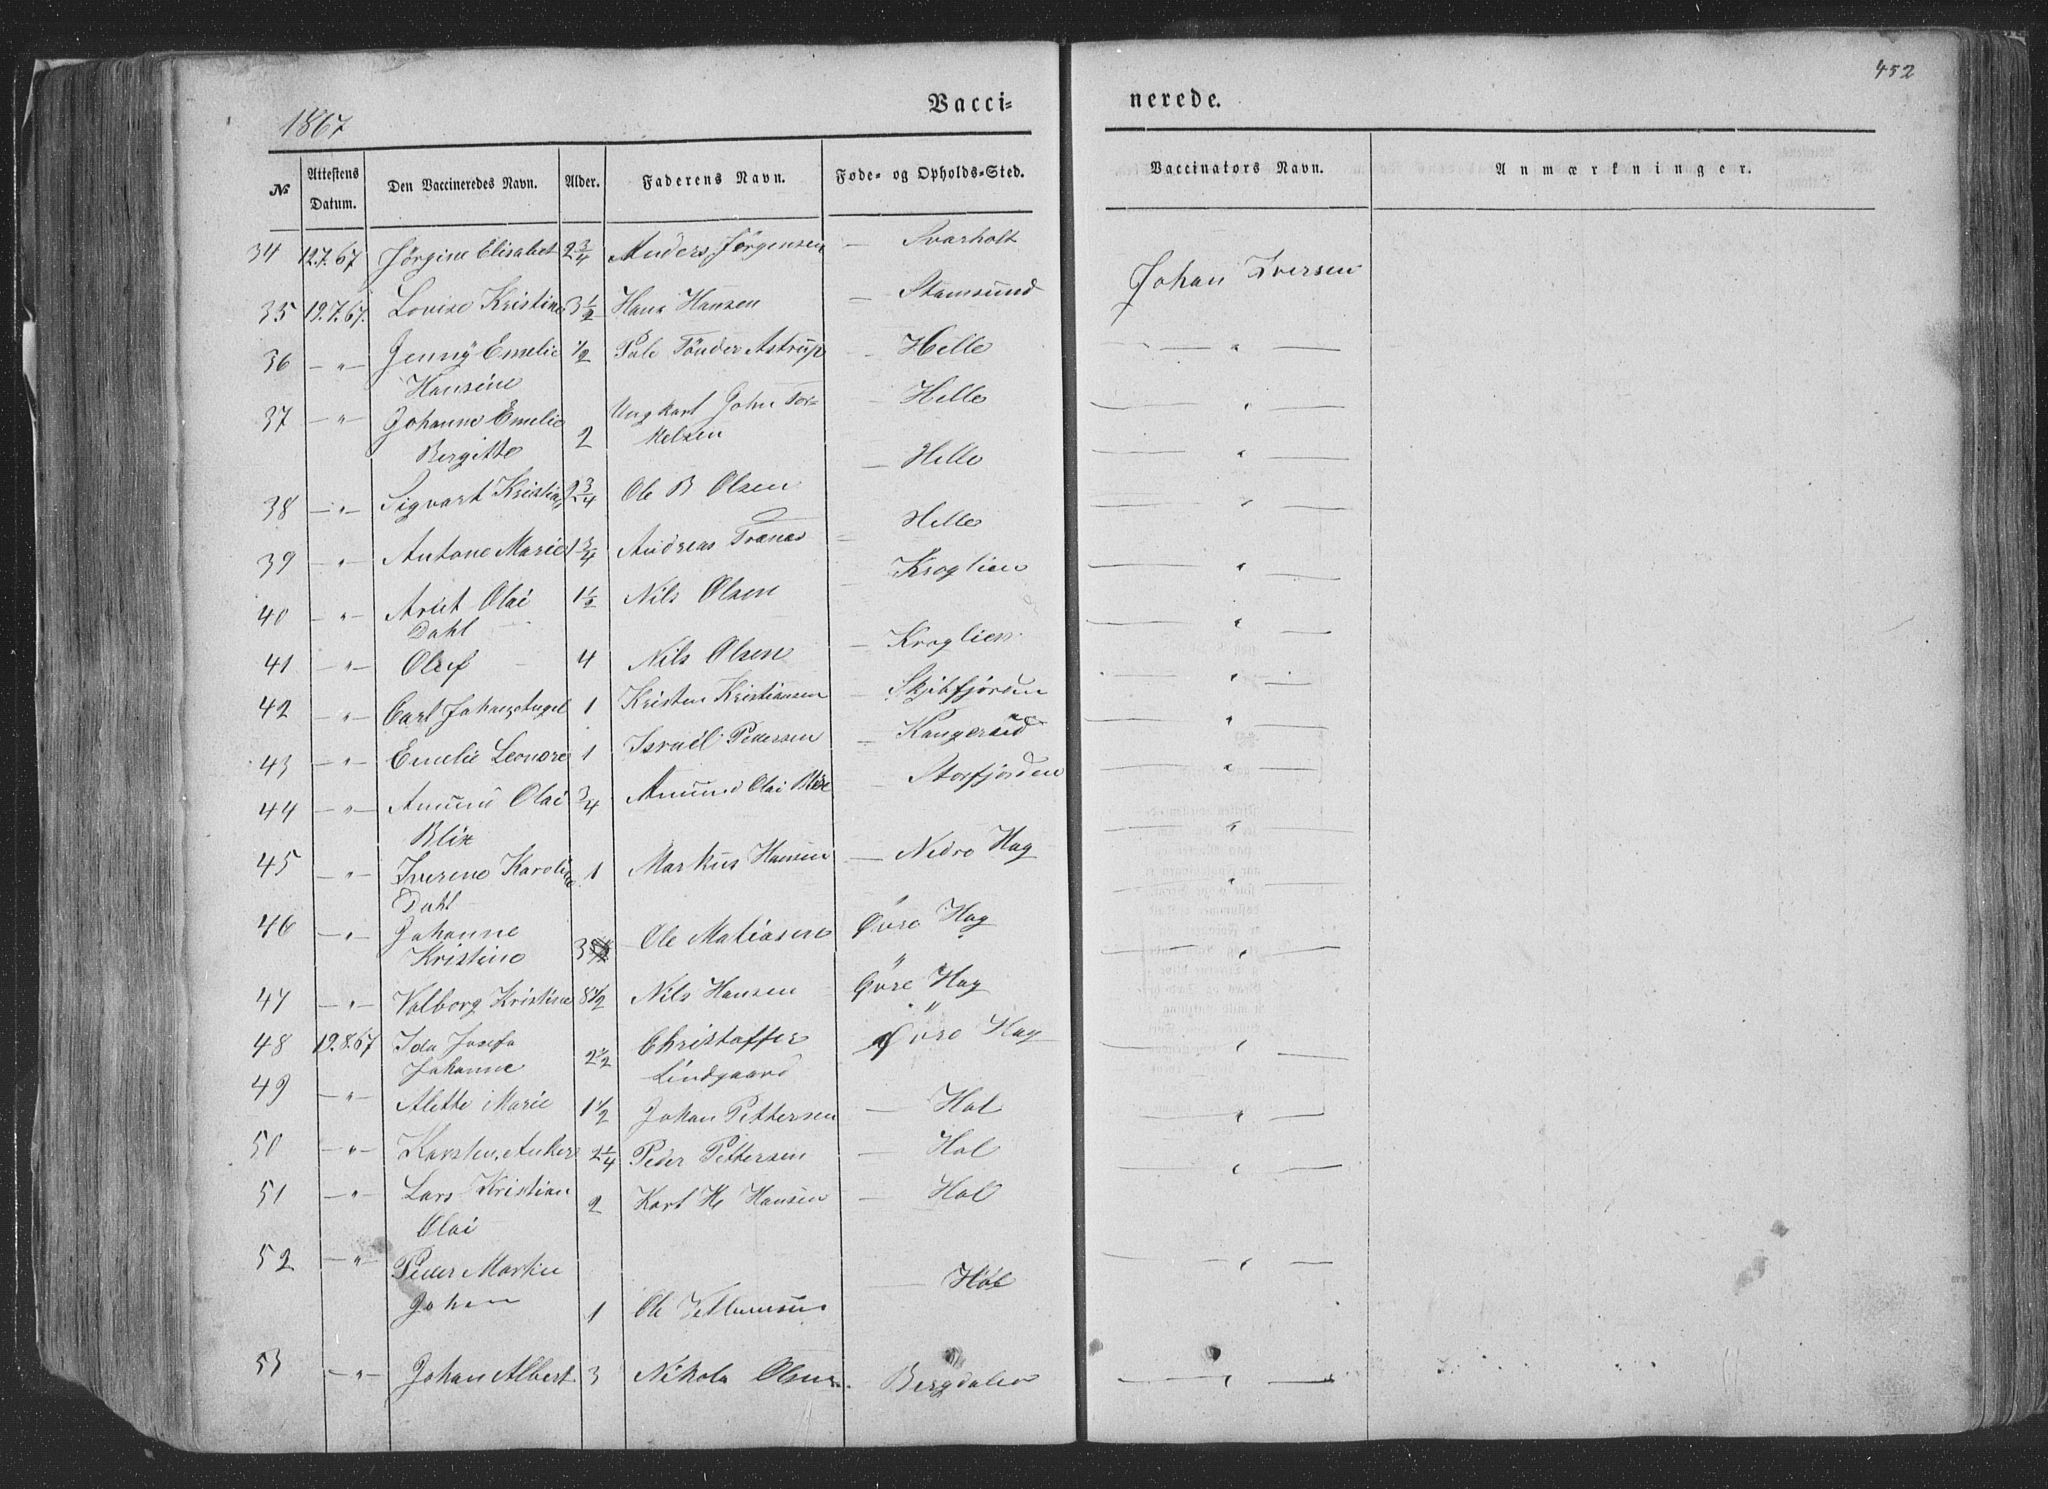 452
1867
Vacci-
nerede.
№ Attestens Datum. Den Vaccineredes Navn. Alder. Faderens Navn. Føde- og Opholds-Sted. Vaccinators Navn. Anmærkninger.
34 12.7.67 Jörgine Elisabet 2 3/4 Anders Jørgensen — Svarholt Johan Iversen
35 19.7.67. Lovise Kristine 3 1/2 Hans Hansen — Stamsund
36 — " — Jenny Emelie 1/2 Tönder Astrup — Helle — " —
Hansine
37 — " — Johanne Emelie John Tor- — Helle — " —
Bergitte 2 kelsen
38 — " — Sigvart Kristian 2 3/4 Ole B Olsen — Helle — " —
39 — " — Antone Marie 1 3/4 Andreas Tranaas — Helle — " —
40 — " — Olai 1 1/2 Nils Olsen — Kroglien — " —
Dahl
41 — " — Oluf 4 Nils Olsen — Kroglien — " —
42 — " — Carl Johan 1 Kristen Kristiansen — Skjelfjorden — " —
43 — " — Emelie Leonore 1 Israel Pedersen — — " —
44 — " — Amund Olai 3/4 Amund Olai Blix — Storfjorden — " —
Blix
45 — " — Iverine Karoline 1 Markus Hansen — Nedre Hag — " —
Dahl
46 — " — Johanne Ole Matiasen Øvre Hag — " —
Kristine 3
47 — " — Valborg Kristine 8 1/2 Nils Hansen Øvre Hag — " —
48 19.8.67 Ida Josefa 2 1/2 Christoffer Øvre Hag — " —
Johanne Lindgaard
49 — " — Alette Marie 1 1/2 Johan Pettersen — Hol — " —
50 — " — Karsten Anker 2 1/4 Peder Pettersen — Hol — " —
51 — " — Lars Kristian 2 Kart Hansen — Hol
Olai
52 — " — Peder Martin — Hol — " —
Johan 1 Ole
53 — " — Johan Albert 3 Nikola Olsen. Bergdalen — " —